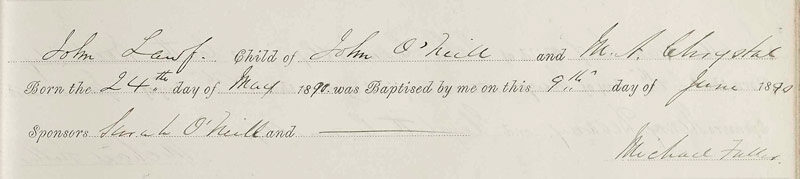 John Lawf. Child of John O'Neill and M. A. Chrystal
Born the 24th day of May 1890 was Baptised by me on this 9th day of June 1890
Sponsors Sarah O'Neill and ———
Michael